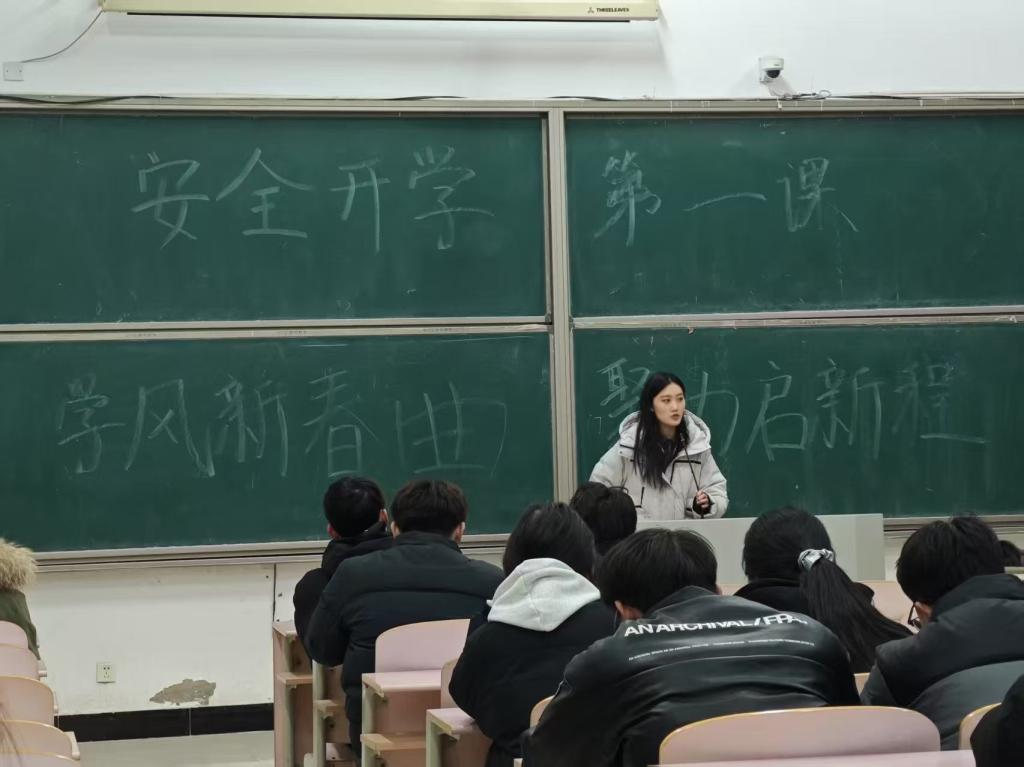 THREELEAVES
安全开学 第一课
学风新春曲 聚力启新程
AN ARCHIVAL / FPA.